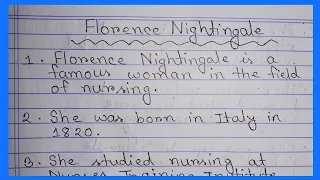 Florence Nightingale
1. Florence Nightingale is a
famous woman in the field
of nursing.
2. She was born in Italy in
1820.
3. She studied nursing at
Nurses Training Institute